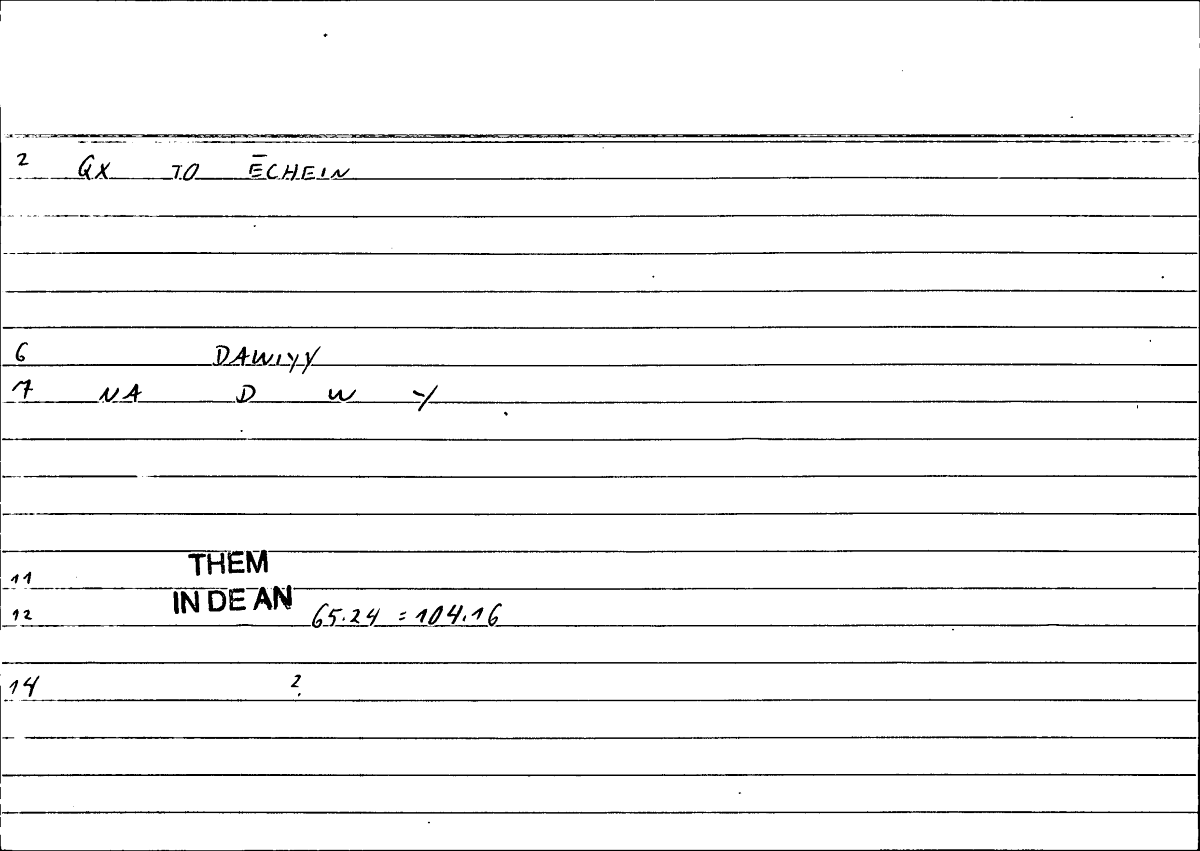 2 GX TO ĒCHEIN
6 DAWIYY
7 NA D W Y
11 THEM
12 IN DE AN 65.24 = 104.16
14 ?